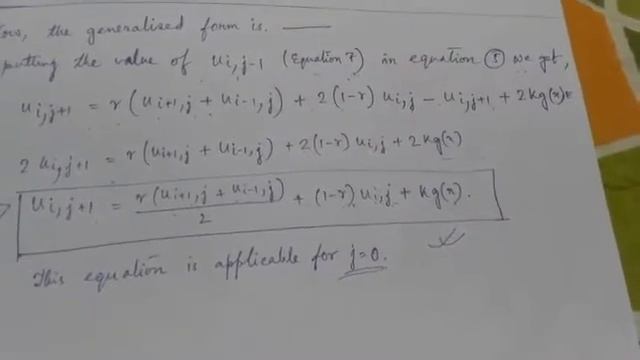 the generalised form is.
putting the value of ui,j-1 (Equation 7) in equation ⑤ we get,
ui,j+1 = r(ui+1,j + ui-1,j) + 2(1-r) ui,j - ui,j+1 + 2kg(x)
2 ui,j+1 = r(ui+1,j + ui-1,j) + 2(1-r) ui,j + 2kg(x)
ui,j+1 = r(ui+1,j + ui-1,j)/2 + (1-r) ui,j + kg(x).
This equation is applicable for j=0.